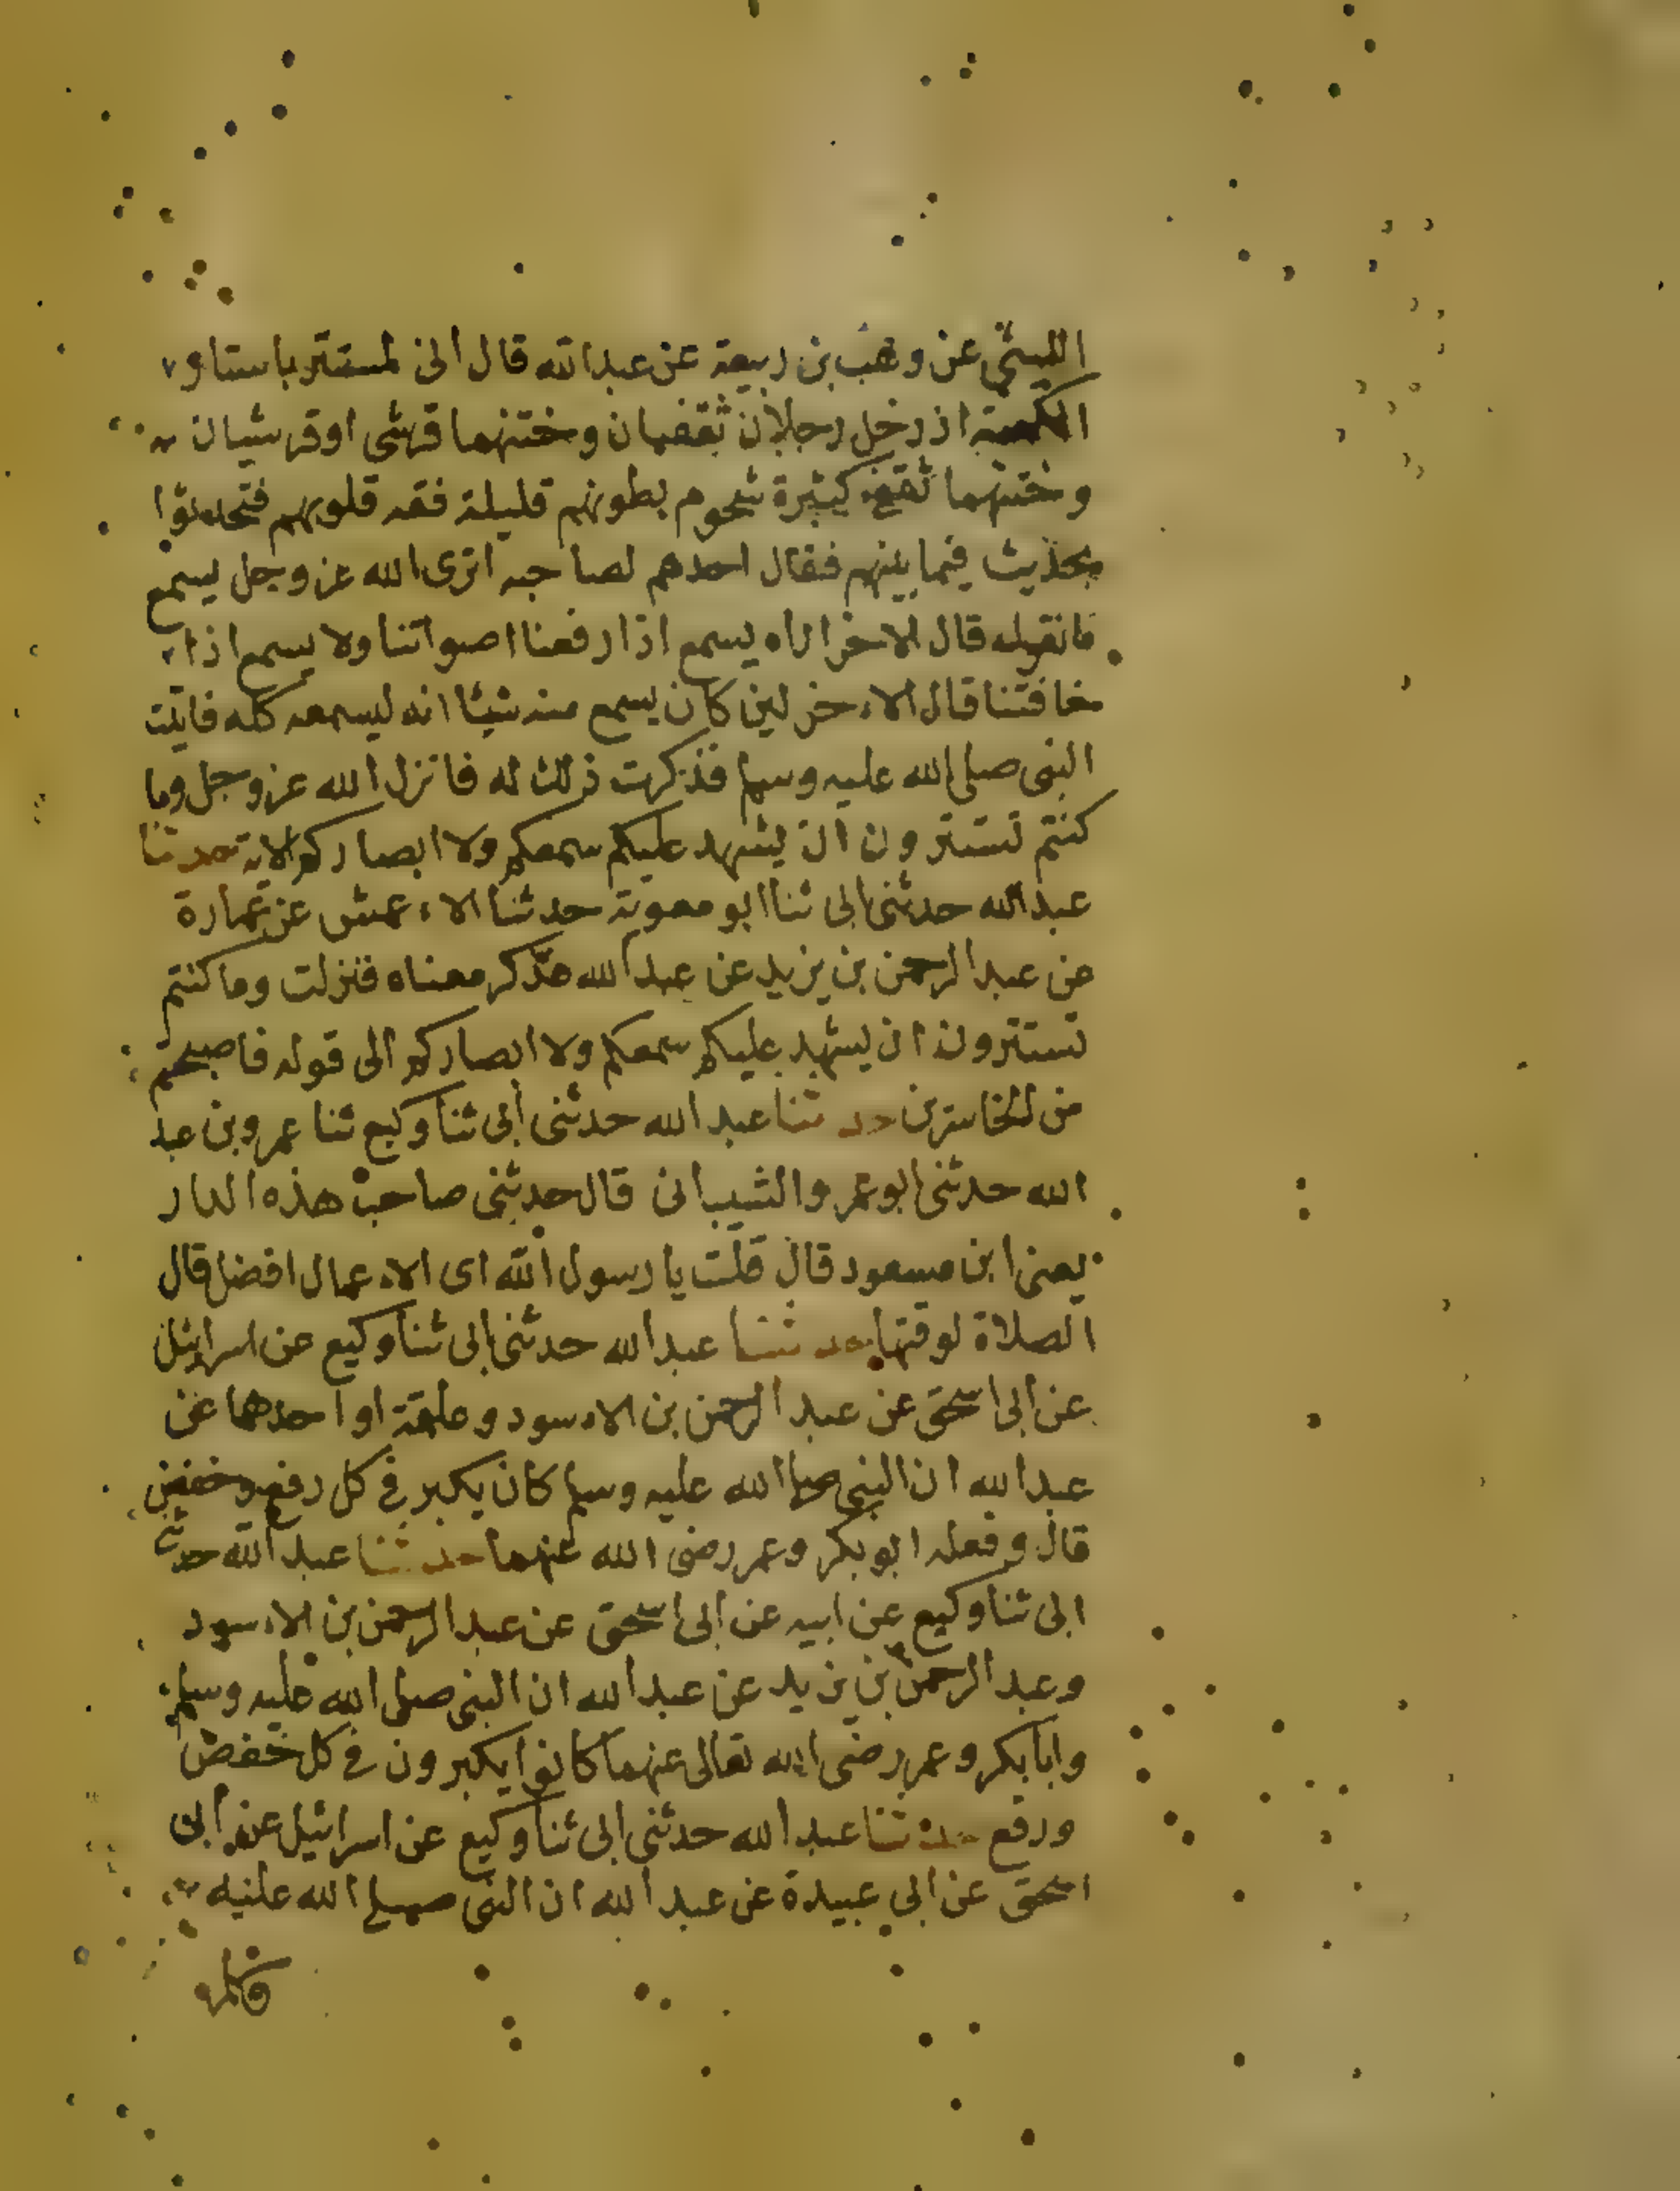 الليثي عن وهب بن ربيعة عن عبد الله قال اني لمستتر باستار
الكعبة اذ دخل رجلان ثقفيان وختنهما قرشى او قرشيان
وختنهما ثقفى كثيرة شحوم بطونهم قليلة فقه قلوبهم فتحدثوا
بحديث فيما بينهم فقال احدهم لصاحبه اترى الله عز وجل يسمع
ما نقوله قال الاخر اراه يسمع اذا رفعنا اصواتنا ولا يسمع اذا
خافتنا قال الاخر لين كان يسمع منه شيئا انه ليسمعه كله فاتيت
النبى صلى الله عليه وسلم فذكرت ذلك له فانزل الله عز وجل وما
كنتم تستترون ان يشهد عليكم سمعكم ولا ابصاركم الاية حدثنا
عبد الله حدثنى ابى ثنا ابو معوية حدثنا الاعمش عن عمارة
عن عبد الرحمن بن يزيد عن عبد الله فذكر معناه فنزلت وما كنتم
تستترون ان يشهد عليكم سمعكم ولا ابصاركم الى قوله فاصبحتم
من الخاسرين حدثنا عبد الله حدثنى ابى ثنا وكيع ثنا عمرو بن عبد
الله حدثنى ابو عمرو الشيبانى قال حدثنى صاحب هذه الدار
يعنى ابن مسعود قال قلت يا رسول الله اى الاعمال افضل قال
الصلاة لوقتها حدثنا عبد الله حدثنى ابى ثنا وكيع عن اسرائيل
عن ابى اسحق عن عبد الرحمن بن الاسود وعلقمة او احدهما عن
عبد الله ان النبى صلى الله عليه وسلم كان يكبر في كل رفع وخفض
قال وفعله ابو بكر وعمر رضى الله عنهما حدثنا عبد الله حدثنى
ابى ثنا وكيع عن ابيه عن ابى اسحق عن عبد الرحمن بن الاسود
وعبد الرحمن بن يزيد عن عبد الله ان النبى صلى الله عليه وسلم
وابا بكر وعمر رضى الله تعالى عنهما كانوا يكبرون في كل خفض
ورفع حدثنا عبد الله حدثنى ابى ثنا وكيع عن اسرائيل عن ابى
اسحق عن ابى عبيدة عن عبد الله ان النبى صلى الله عليه